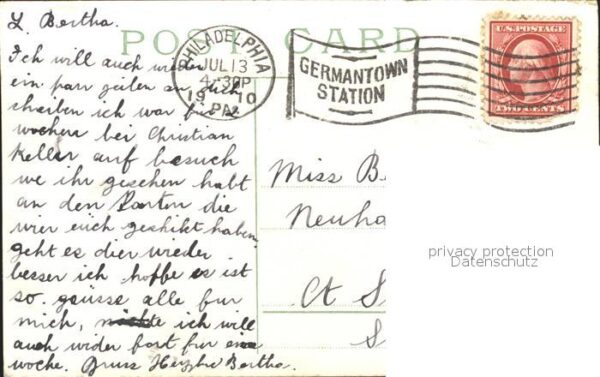 L. Bertha.
POST CARD
Ich will auch wider
ein parr zeilen an
schreiben ich war für 2
wochen bei Christian
Keller auf besuch
we ihr gesehen habt
an den Karten die
wier euch geschikt haben
geht es dier wieder
besser ich hoffe es ist
so. grüsse alle fur
mich, ich will
auch wider fort fur eine
woche. Gruss Bertha.
PHILADELPHIA
JUL 13
4-30P
1910
PA.
GERMANTOWN
STATION
U.S. POSTAGE
TWO CENTS
Miss B
Neuho
Ct S
S
privacy protection
Datenschutz